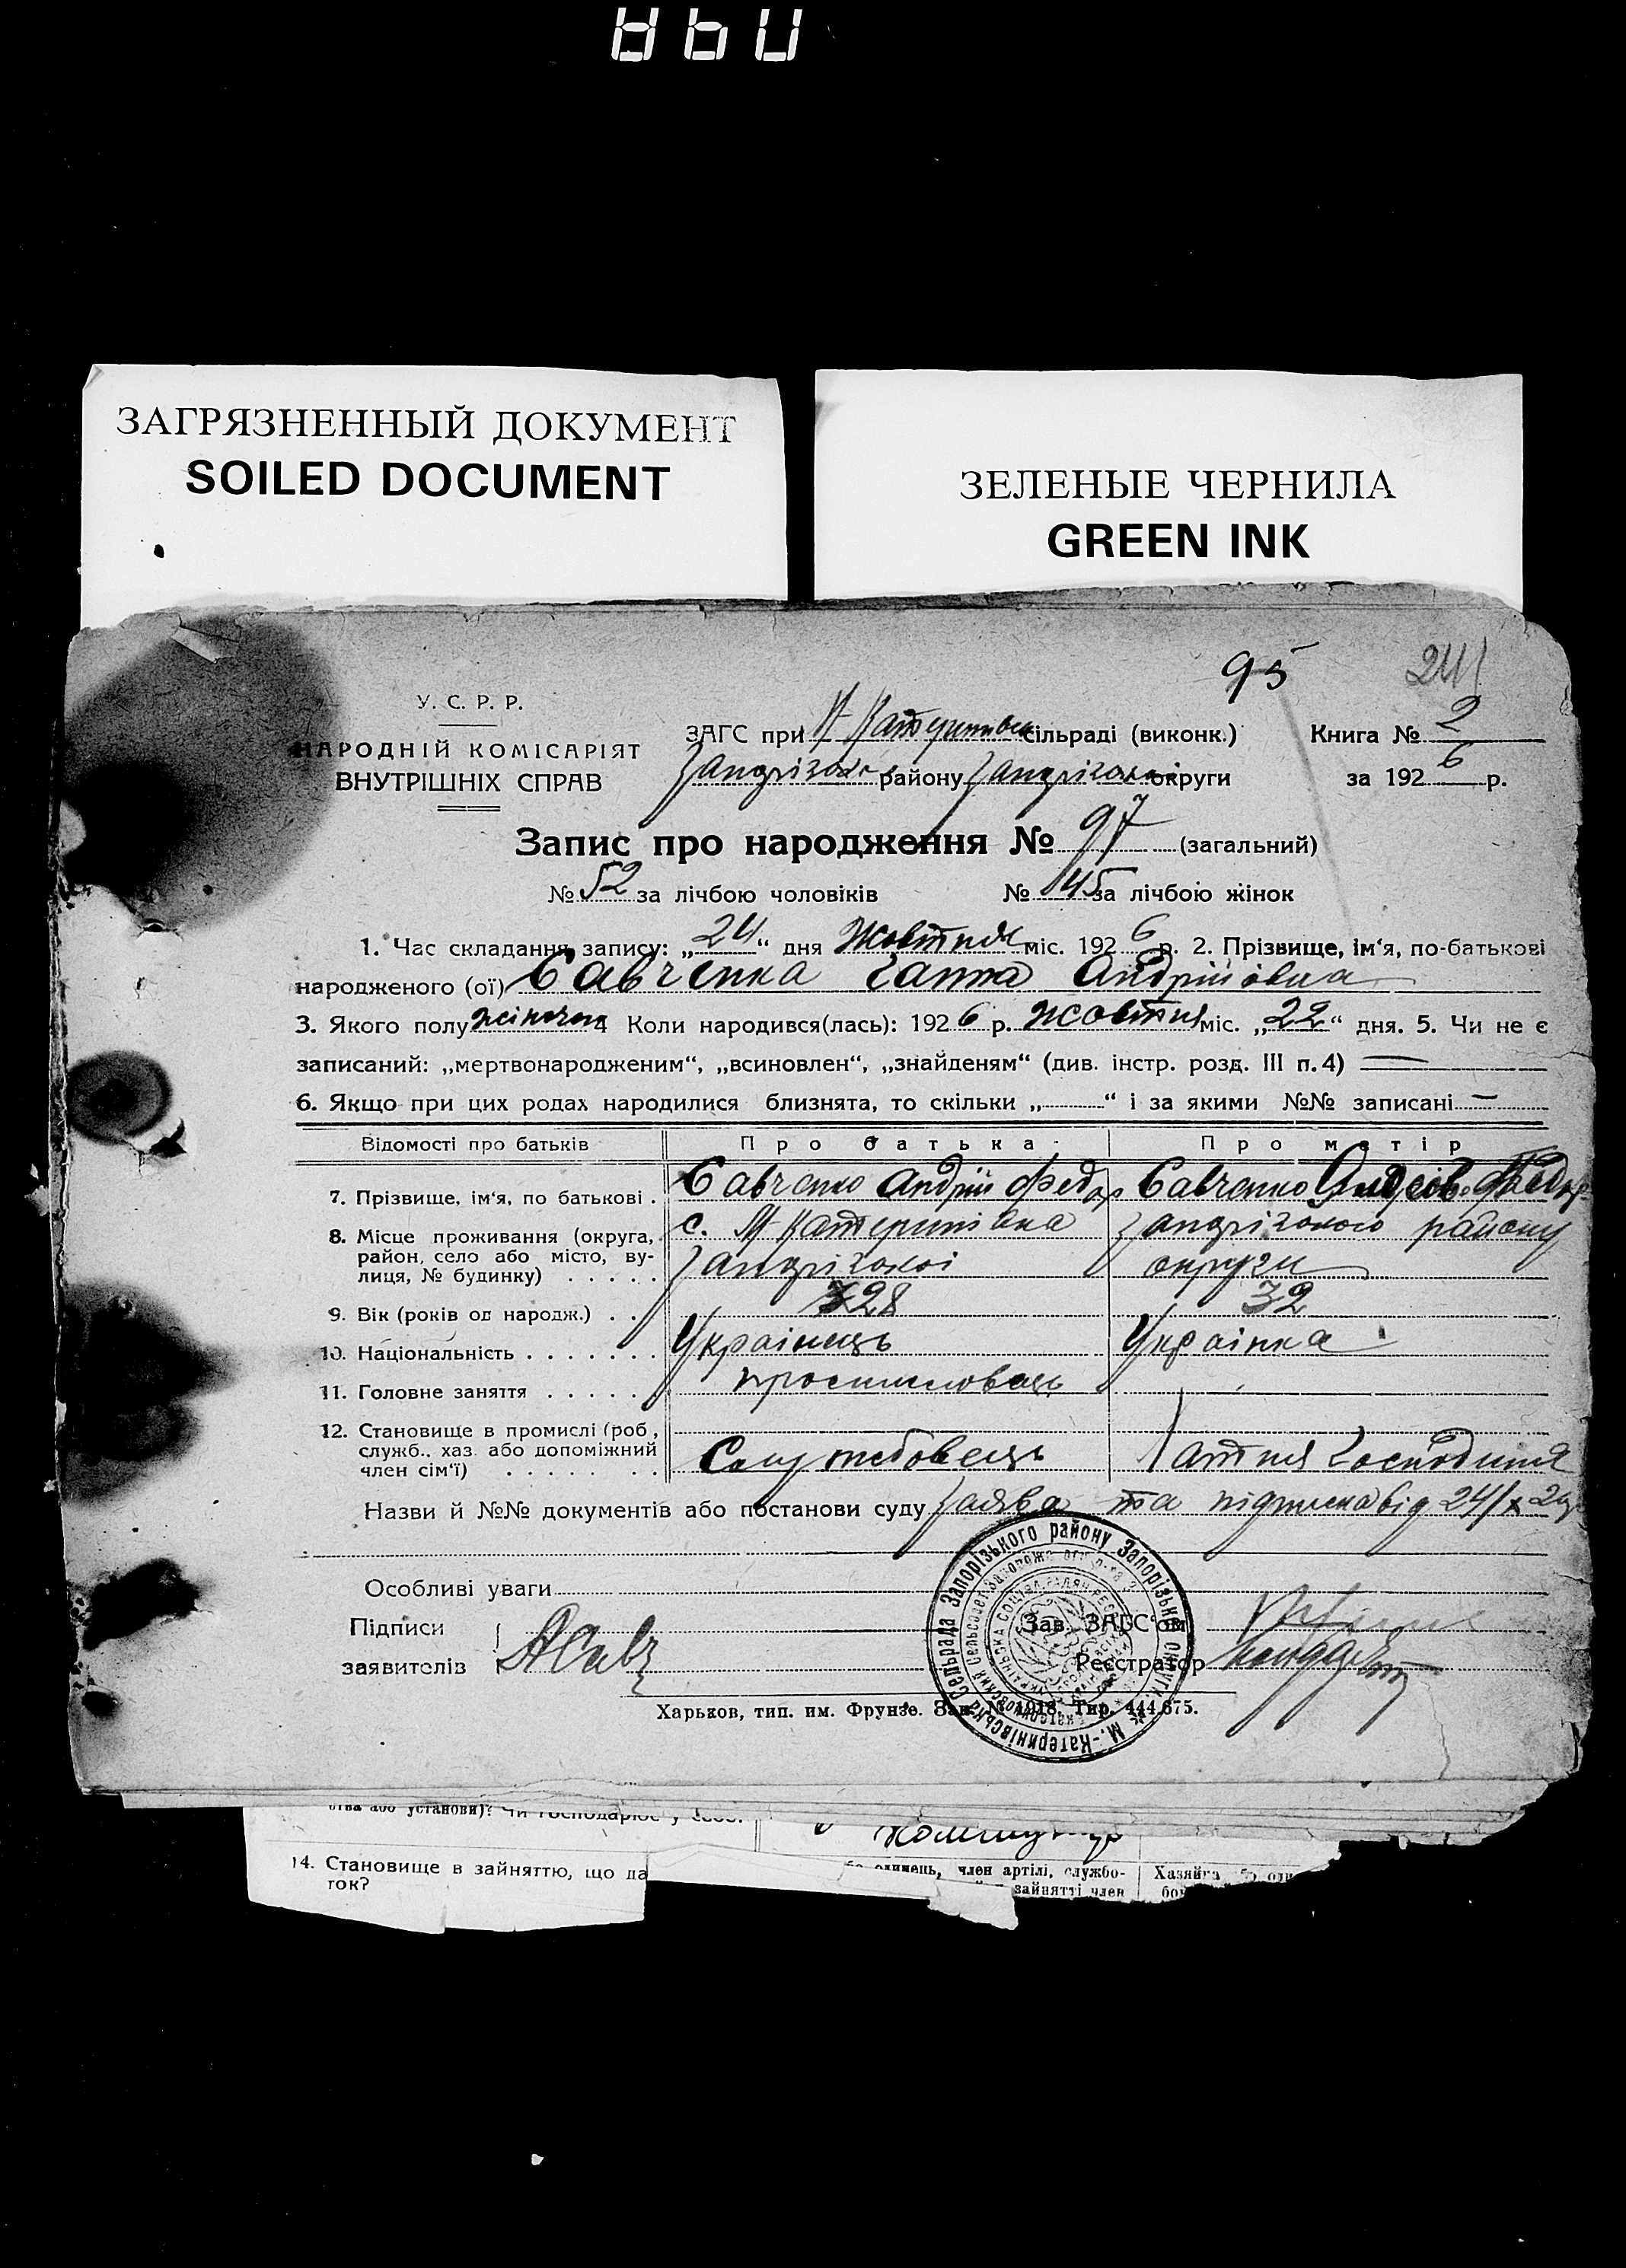 ЗАГРЯЗНЕННЫЙ ДОКУМЕНТ
SOILED DOCUMENT
ЗЕЛЕНЫЕ ЧЕРНИЛА
GREEN INK
95 241
У. С. Р. Р.
НАРОДНІЙ КОМІСАРІЯТ
ВНУТРІШНІХ СПРАВ
ЗАГС при М Катеринівск сільраді (виконк.)
району округи
Книга № 2
за 1926 р.
Запис про народження № 97 (загальний)
№ 52 за лічбою чоловіків № 45 за лічбою жінок
1. Час складання запису: „24“ дня Жовтня міс. 1926 р. 2. Прізвище, ім‘я, по-батькові
народженого (ої) Савченка Ганна Андріївна
3. Якого полу жіночого 4 Коли народився(лась): 1926 р. жовтня міс. „22“ дня. 5. Чи не є
записаний: „мертвонародженим“, „всиновлен“, „знайденям“ (див. інстр. розд. III п. 4) —
6. Якщо при цих родах народилися близнята, то скільки „......“ і за якими №№ записані —
Відомості про батьків Про батька Про матір
7. Прізвище, ім‘я, по батькові . Савченко Андрій Федор Савченко Федор
8. Місце проживання (округа, с. М Катеринівка запорізького району
район, село або місто, ву- запорізької округи
лиця, № будинку) . . . . .
9. Вік (років од народж.) . . 28 32
10. Національність . . . . . . . Українець Українка
11. Головне заняття . . . . . промисловець
12. Становище в промислі (роб,
служб., хаз. або допоміжний Службовець Хатня господиня
член сім‘ї) . . . . . . .
Назви й №№ документів або постанови суду заява та підписка від 24/X 26р
Особливі уваги
Підписи
заявителів
АСавч
Зав. ЗАГС‘ом
Реєстратор
М.-Катеринівська Сельрада Запорізького району Запорізької округи
Харьков, тип. им. Фрунзе. Зак. № 1918. Тир. 444.675.
ства або установи)? Чи господарює у
14. Становище в зайняттю, що да
ток?
член артілі, службо-
зайнятті член
Хазяйка